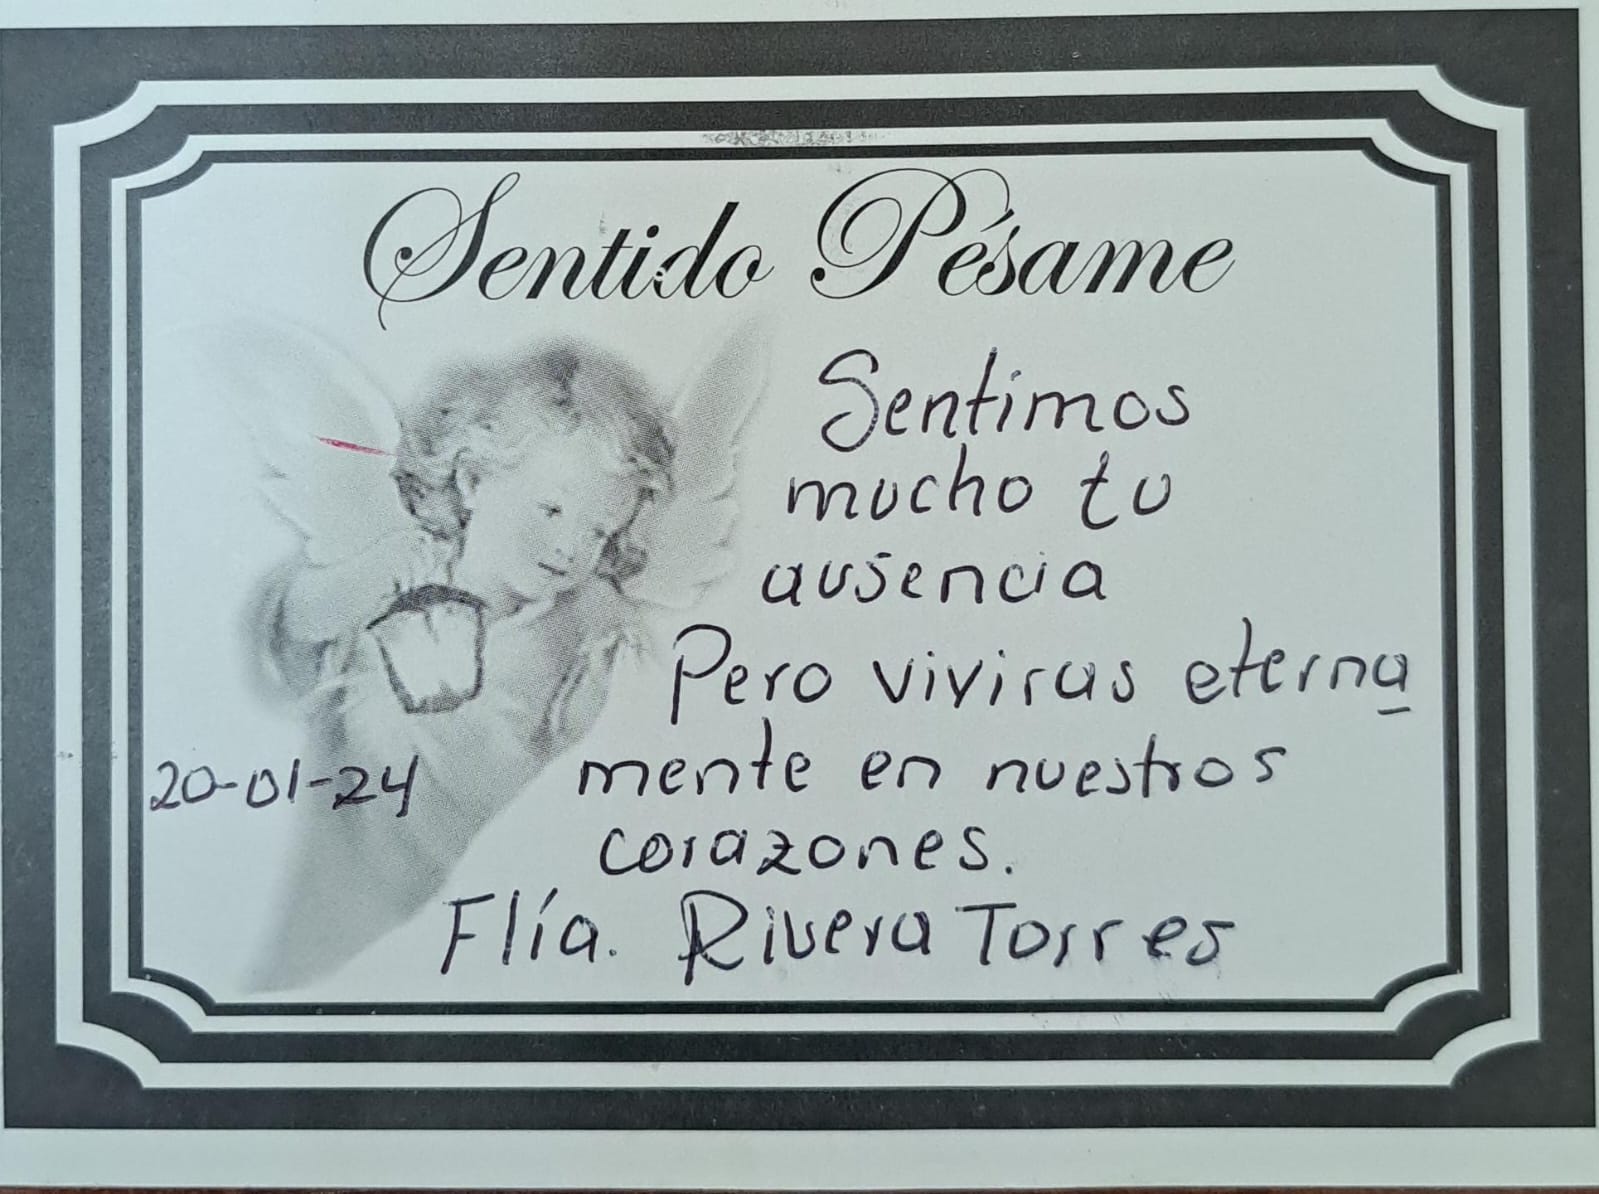 Sentido Pésame
Sentimos
mucho tu
ausencia
Pero viviras eterna
mente en nuestros
corazones.
20-01-24
Flía. Rivera Torres